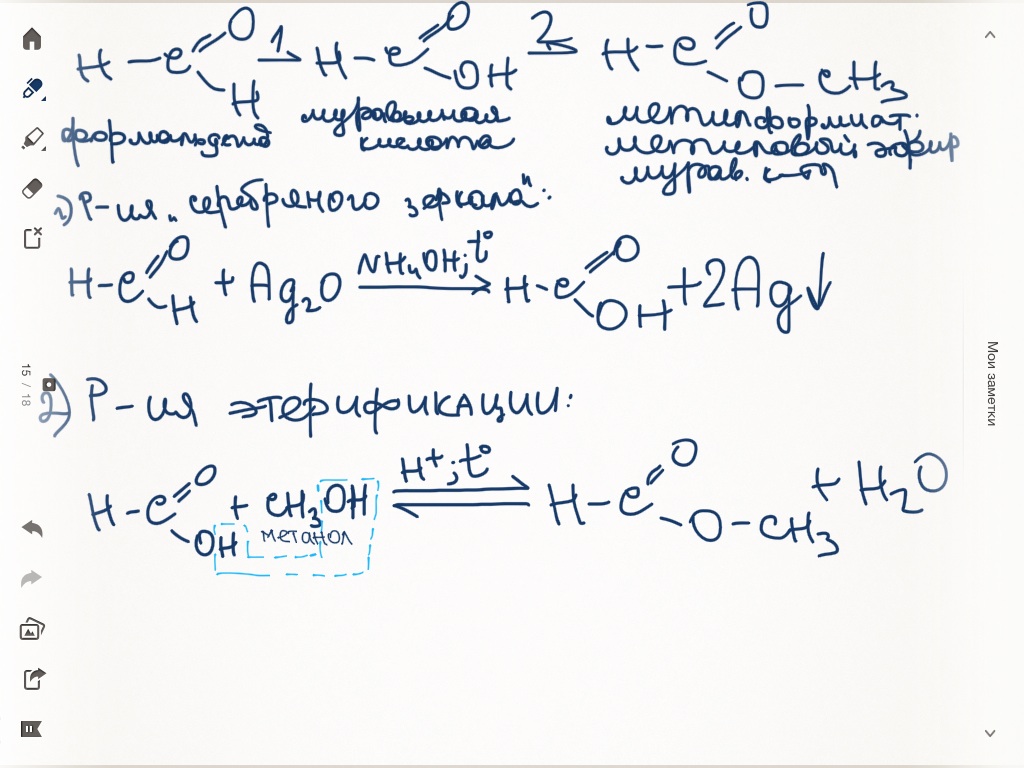 H–C=O H 1→ H–C=O OH 2→ H–C=O O–CH3
формальдегид муравьиная кислота метилформиат.
метиловый эфир
мурав. к-ты
1) Р-ия „серебряного зеркала":
H–C=O H + Ag2O NH4OH; t° → H–C=O OH + 2Ag↓
2) Р-ия этерификации:
H–C=O OH + CH3OH H+; t° ⇌ H–C=O O–CH3 + H2O
метанол
15 / 18
Мои заметки